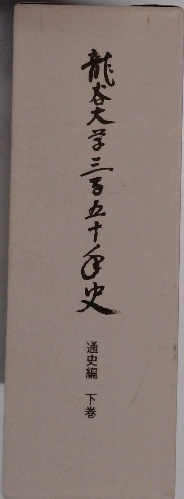 龍谷大学三百五十年史
通史編 下巻